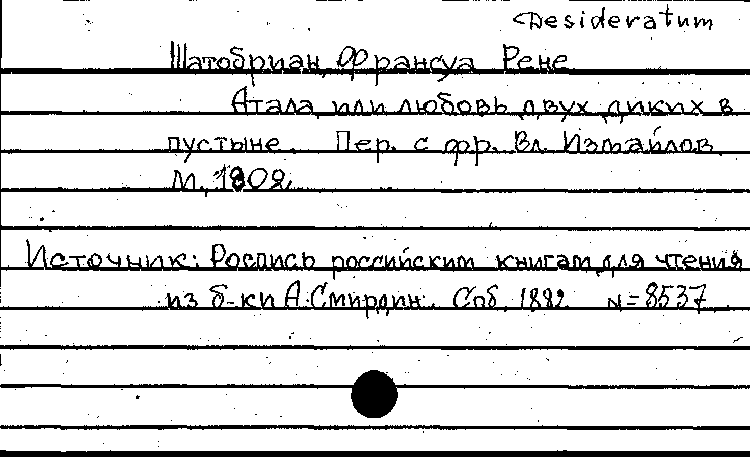 Desideratum
Шатобриан, Франсуа Рене
Атала, или любовь двух диких в
пустыне. Пер. с фр. Вл. Измайлов
М., 1802.
Источник: Роспись российским книгам для чтения
из б-ки А. Смирдин. Спб, 1882 N=8537